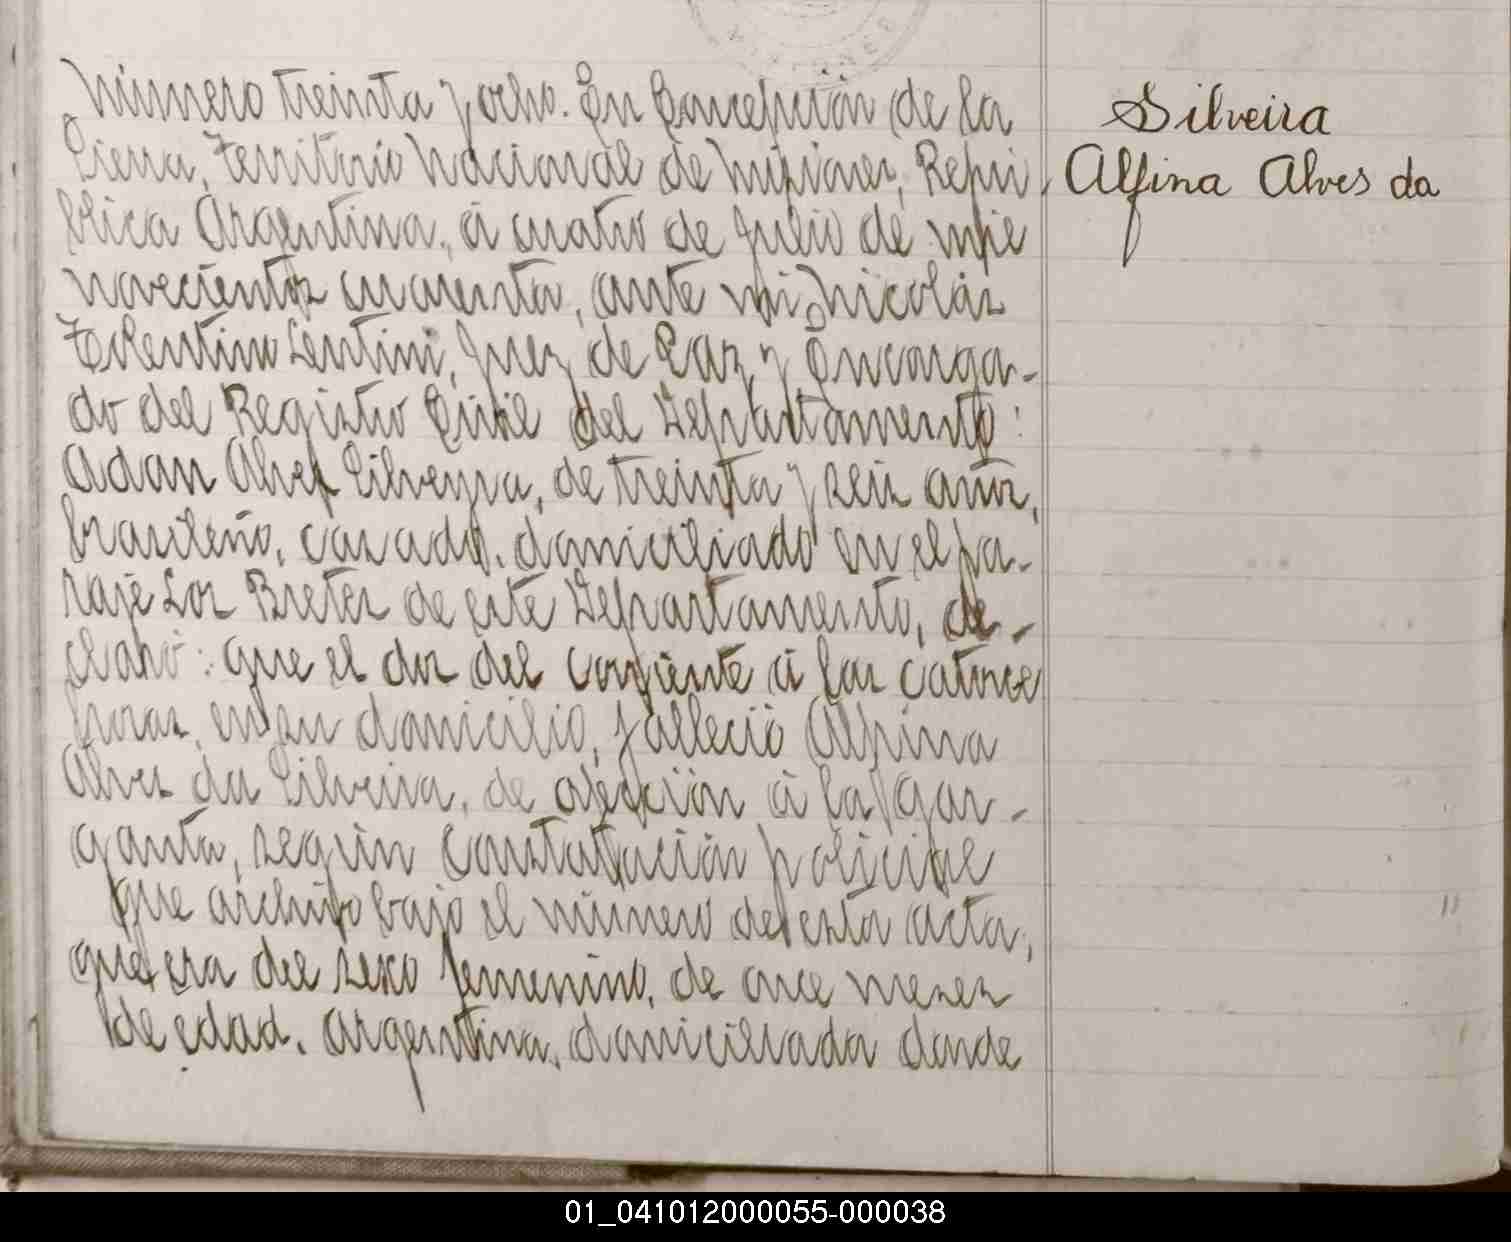 Número treinta y ocho. En Concepción de la
Sierra, Territorio Nacional de Misiones, Repú
blica Argentina, á cuatro de Julio de mil
novecientos cuarenta, ante mi, Nicolás
Tolentino Lentini, Juez de Paz y Encarga-
do del Registro Civil del Departamento:
Adan Alves Silveyra, de treinta y seis años,
brasileño, casado, domiciliado en el pa-
raje Los Bretes de este Departamento, de-
claró: que el dos del corriente á las catorce
horas, en su domicilio, falleció Alpina
Alves da Silveira, de afección á la gar-
ganta, según constatación policial
que archivo bajo el número de esta acta,
que era del sexo femenino, de once meses
de edad, argentina, domiciliada donde
Silveira
Alfina Alves da
01_041012000055-000038